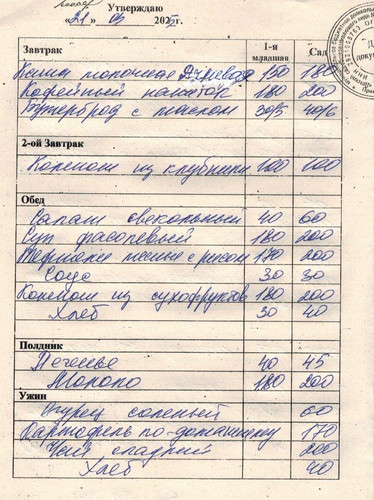 Утверждаю
«21» 03 2025г.
Завтрак 1-я младшая Сад
Каша молочная 150 180
Кофейный напиток 180 200
Бутерброд с маслом 30/5 40/6
2-ой Завтрак
Компот из клубники 100 100
Обед
Салат свекольный 40 60
Суп фасолевый 180 200
Тефтели мясные с рисом 170 200
Соус 30 30
Компот из сухофруктов 180 200
Хлеб 30 40
Полдник
Печенье 40 45
Молоко 180 200
Ужин
Огурец соленый 60
Картофель по-домашнему 170
Чай сладкий 200
Хлеб 40